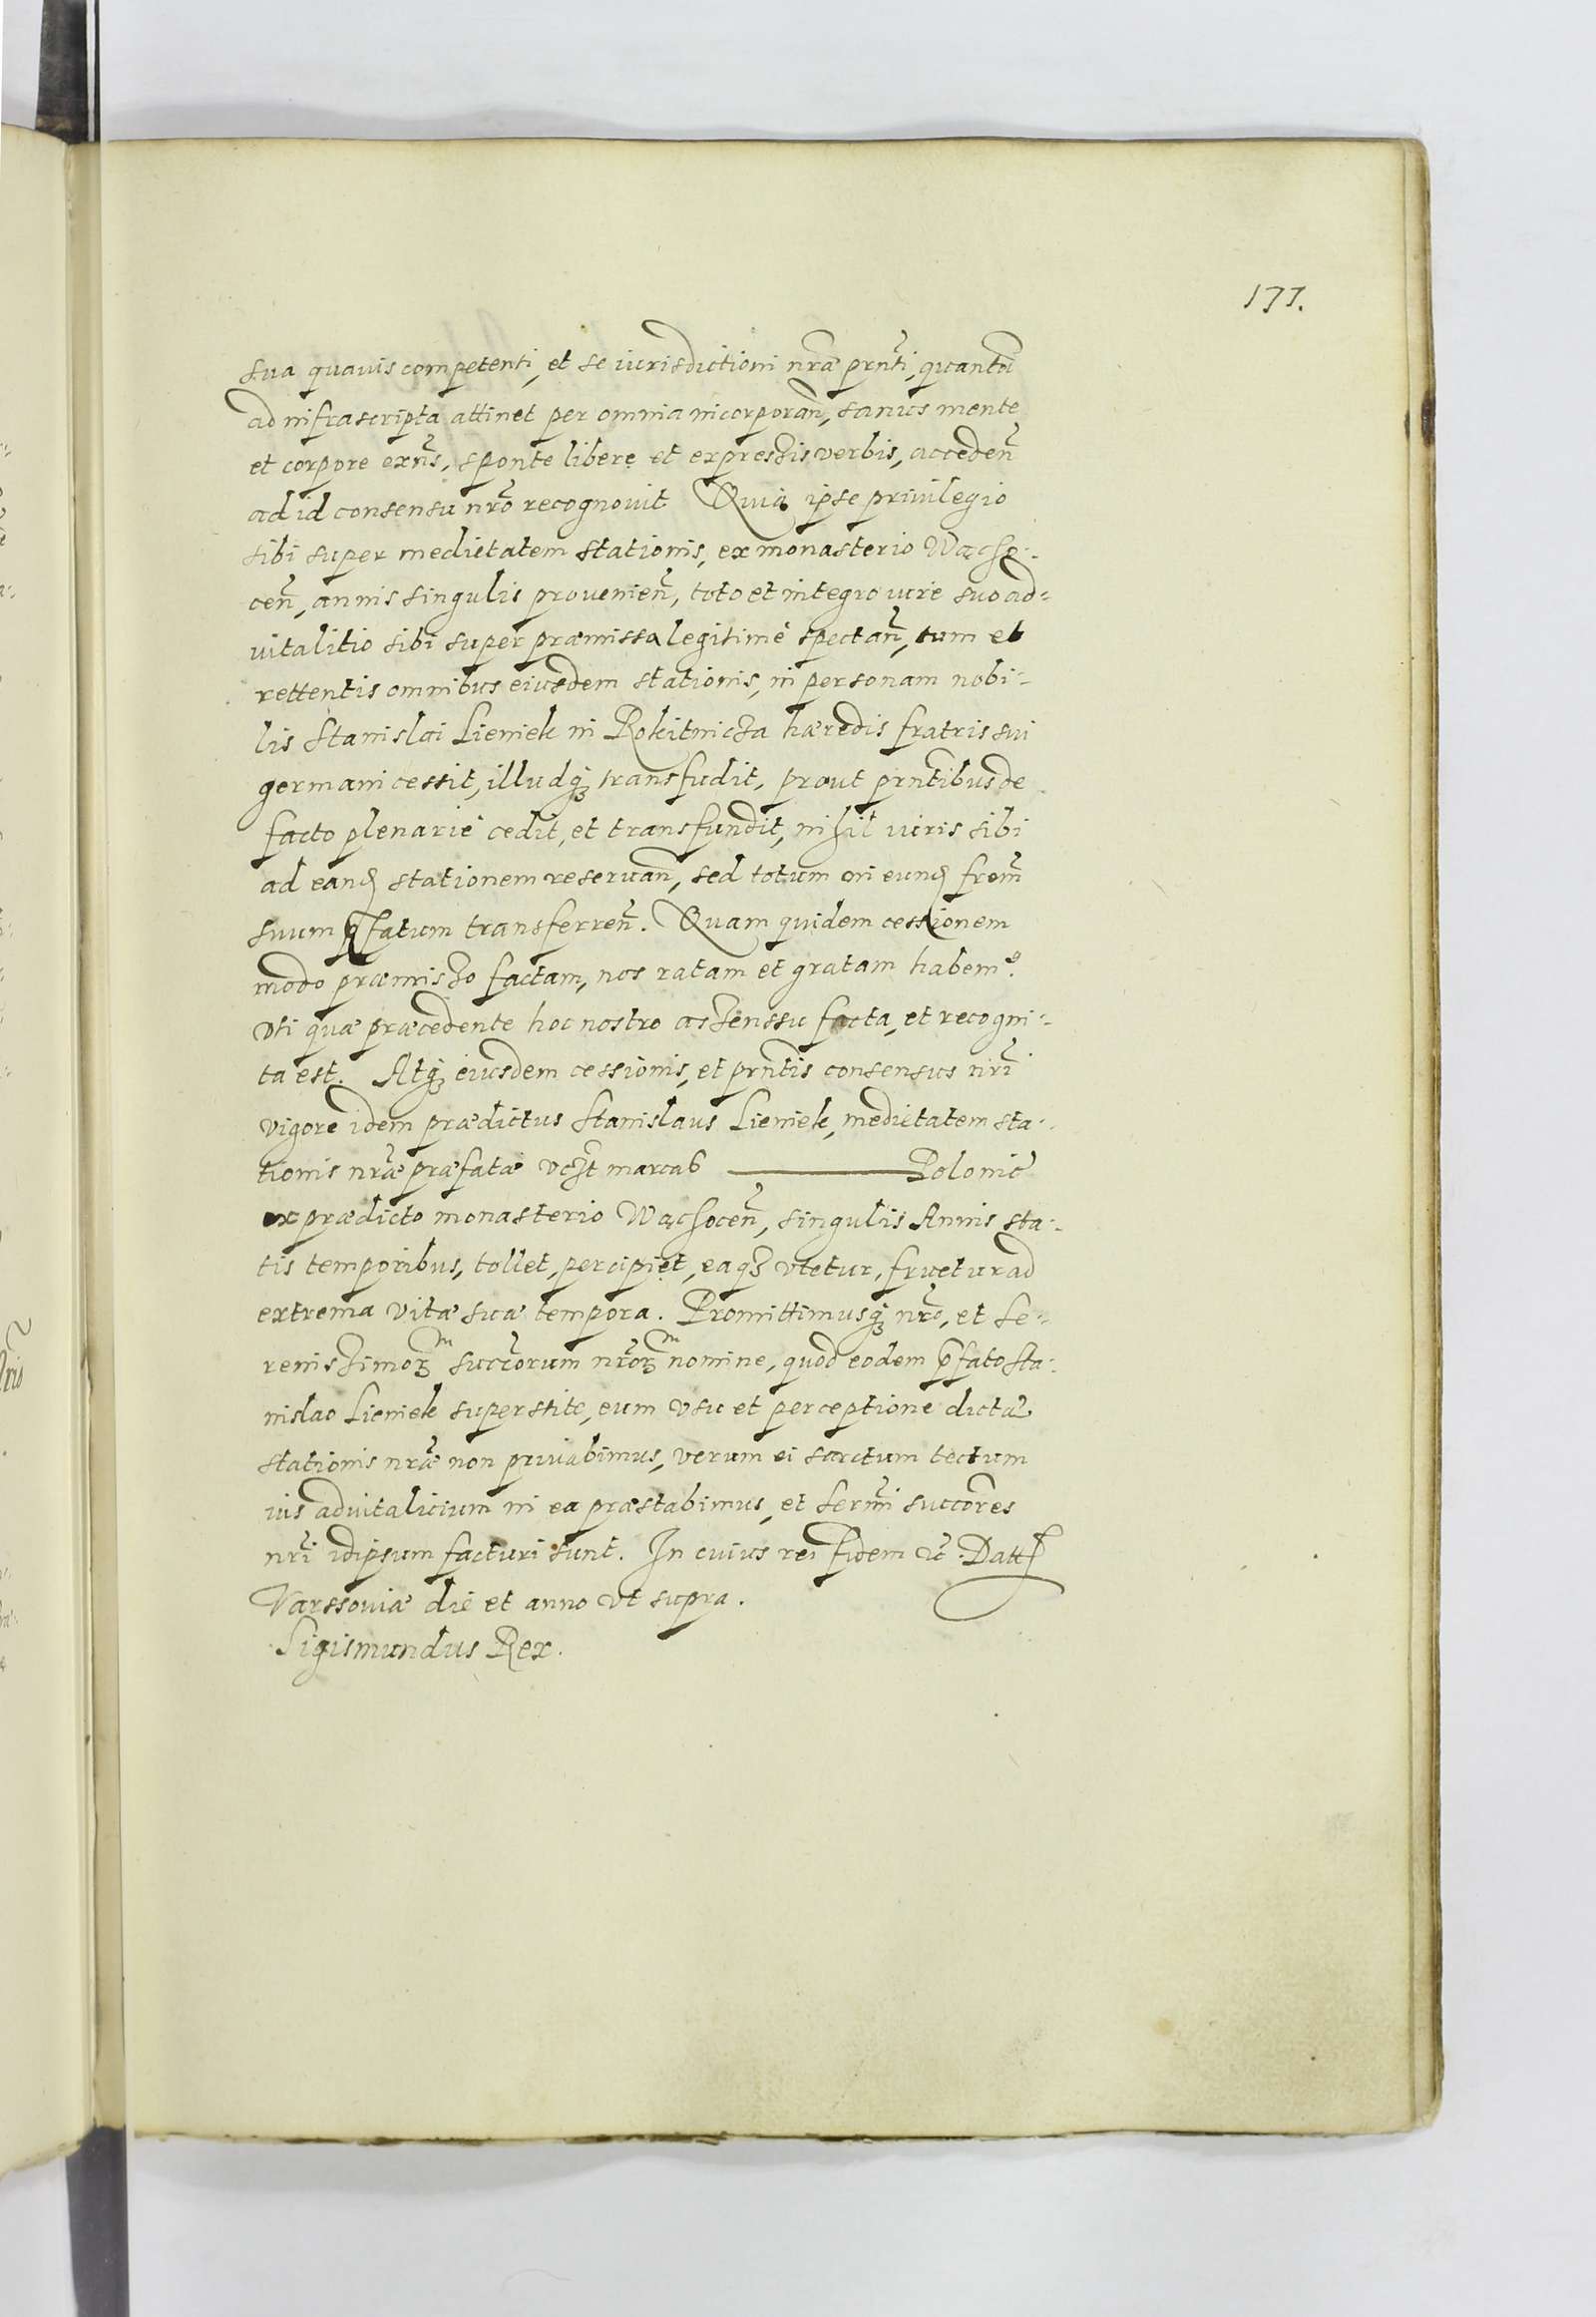 177.
sua quauis competenti, et se iurisdictioni nræ prnti, quantū
ad infrascripta attinet per omnia incorporan̄, sanus mente
et corpore exn̄s, sponte libere et expressis verbis, acceden̄
ad id consensu nrō recognouit Quia ipse priuilegio
sibi super medietatem stationis, ex monasterio Wącho-
cen̄, annis singulis prouenien̄, toto et integro iure suo ad-
vitalitio sibi super præmissa legitimè spectan̄, tum et
rettentis omnibus eiusdem stationis, in personam nobi-
lis Stanislai Lieniek in Rokitnicza hæredis fratris sui
germani cessit, illudq₃ transfudit, prout prn̄tibus de
facto plenariè cedit, et transfundit, nihil iuris sibi
ad eand stationem reseruan̄, sed totum in eund frem̄
suum p̄fatum transferren̄. Quam quidem cessionem
modo præmisso factam, nos ratam et gratam habem⁹.
vti quæ præcedente hoc nostro assenssu facta, et recogni-
ta est. Atq₃ eiusdem cessionis, et prn̄tis consensus nrī
vigore idem prædictus Stanislaus Lieniek, medietatem sta-
tionis nræ præfatæ vczt marcas ——— Polonic̄
ex prædicto monasterio Wąchocen̄, singulis Annis sta-
tis temporibus, tollet, percipiet, eaq₃ vtetur, fruetur ad
extrema vitæ suæ tempora. Promittimusq₃ nrō, et Se-
renissimoꝝ succ̄orum nrōꝝ nomine, quod eodem p̄fato Sta-
nislao Lieniek superstite, eum vsu et perceptione dictæ
stationis nræ non priuabimus, verum ei sarctum tectum
ius aduitalicium in ea præstabimus, et Serm̄i succōres
nrī idipsum facturi sunt. In cuius rei fidem etc̄. Datt
Varssouiæ die et anno vt supra.
Sigismundus Rex.